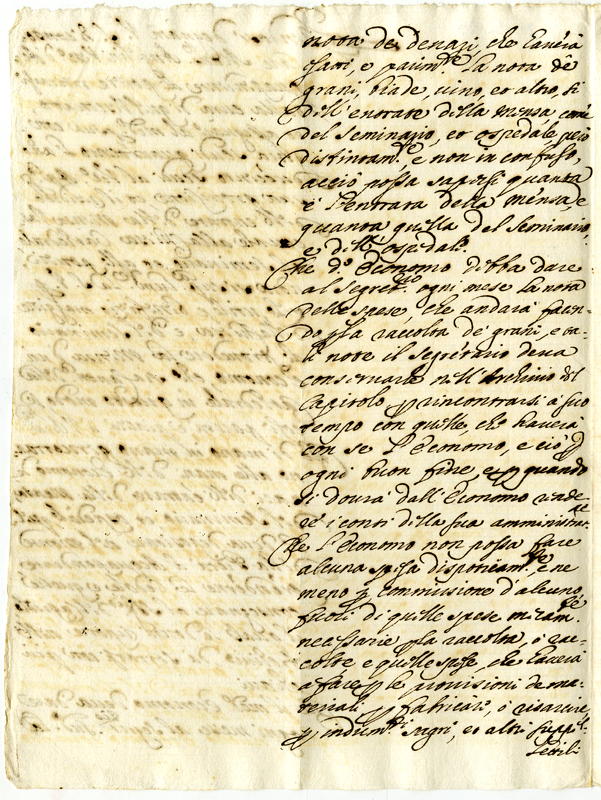 nota de denari, che haverà
fatti, e parim.te la nota de
grani, biade, vino, et altro, sì
dell'entrate della Mensa come
del Seminario, et ospedale, però
distintam.te e non in confuso,
acciò possa sapersi quanta
è l'entrata della mensa, e
quanta quella del Seminario,
e dell'ospedale.
Che d.o Economo debba dare
al Segret.rio ogni mese la nota
delle spese, che andarà facen-
do p la raccolta de grani, e ta-
li note il Segretario deva
conservarle nell'Archivio del
Capitolo p rincontrarsi a suo
tempo con quelle, che haverà
con se l'Economo, e ciò p
ogni buon fine, e p quando
si dovrà dall'Economo rende-
re i conti della sua amministra.ne
Che l'Economo non possa fare
alcuna spesa dispoticam.te, e ne
meno p commissione d'alcuno,
fuori di quelle spese meram.te
necessarie p la raccolta, ò rac-
colte, e quelle spese, che haverà
a fare p le provisioni de ma-
teriali p fabricare, ò risarcire,
p indum.ti sagri, et altri suppel-
lettili